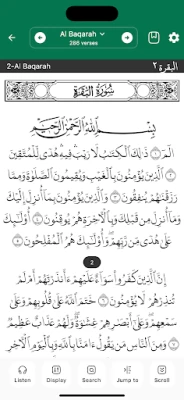 Al Baqarah
286 verses
2-Al Baqarah
البقرة ٢
سُورَةُ البَقَرَةِ
بِسْمِ اللَّهِ الرَّحْمَٰنِ الرَّحِيمِ
الٓمٓ ١ ذَٰلِكَ ٱلْكِتَٰبُ لَا رَيْبَ فِيهِ هُدًى لِّلْمُتَّقِينَ ٢
ٱلَّذِينَ يُؤْمِنُونَ بِٱلْغَيْبِ وَيُقِيمُونَ ٱلصَّلَوٰةَ وَمِمَّا
رَزَقْنَٰهُمْ يُنفِقُونَ ٣ وَٱلَّذِينَ يُؤْمِنُونَ بِمَآ أُنزِلَ إِلَيْكَ
وَمَآ أُنزِلَ مِن قَبْلِكَ وَبِٱلْءَاخِرَةِ هُمْ يُوقِنُونَ ٤ أُو۟لَٰٓئِكَ
عَلَىٰ هُدًى مِّن رَّبِّهِمْ وَأُو۟لَٰٓئِكَ هُمُ ٱلْمُفْلِحُونَ ٥
2
إِنَّ ٱلَّذِينَ كَفَرُوا۟ سَوَآءٌ عَلَيْهِمْ ءَأَنذَرْتَهُمْ أَمْ لَمْ
تُنذِرْهُمْ لَا يُؤْمِنُونَ ٦ خَتَمَ ٱللَّهُ عَلَىٰ قُلُوبِهِمْ وَعَلَىٰ
سَمْعِهِمْ وَعَلَىٰٓ أَبْصَٰرِهِمْ غِشَٰوَةٌ وَلَهُمْ عَذَابٌ عَظِيمٌ ٧
وَمِنَ ٱلنَّاسِ مَن يَقُولُ ءَامَنَّا بِٱللَّهِ وَبِٱلْيَوْمِ ٱلْءَاخِرِ
Listen
Display
Search
Jump to
Scroll